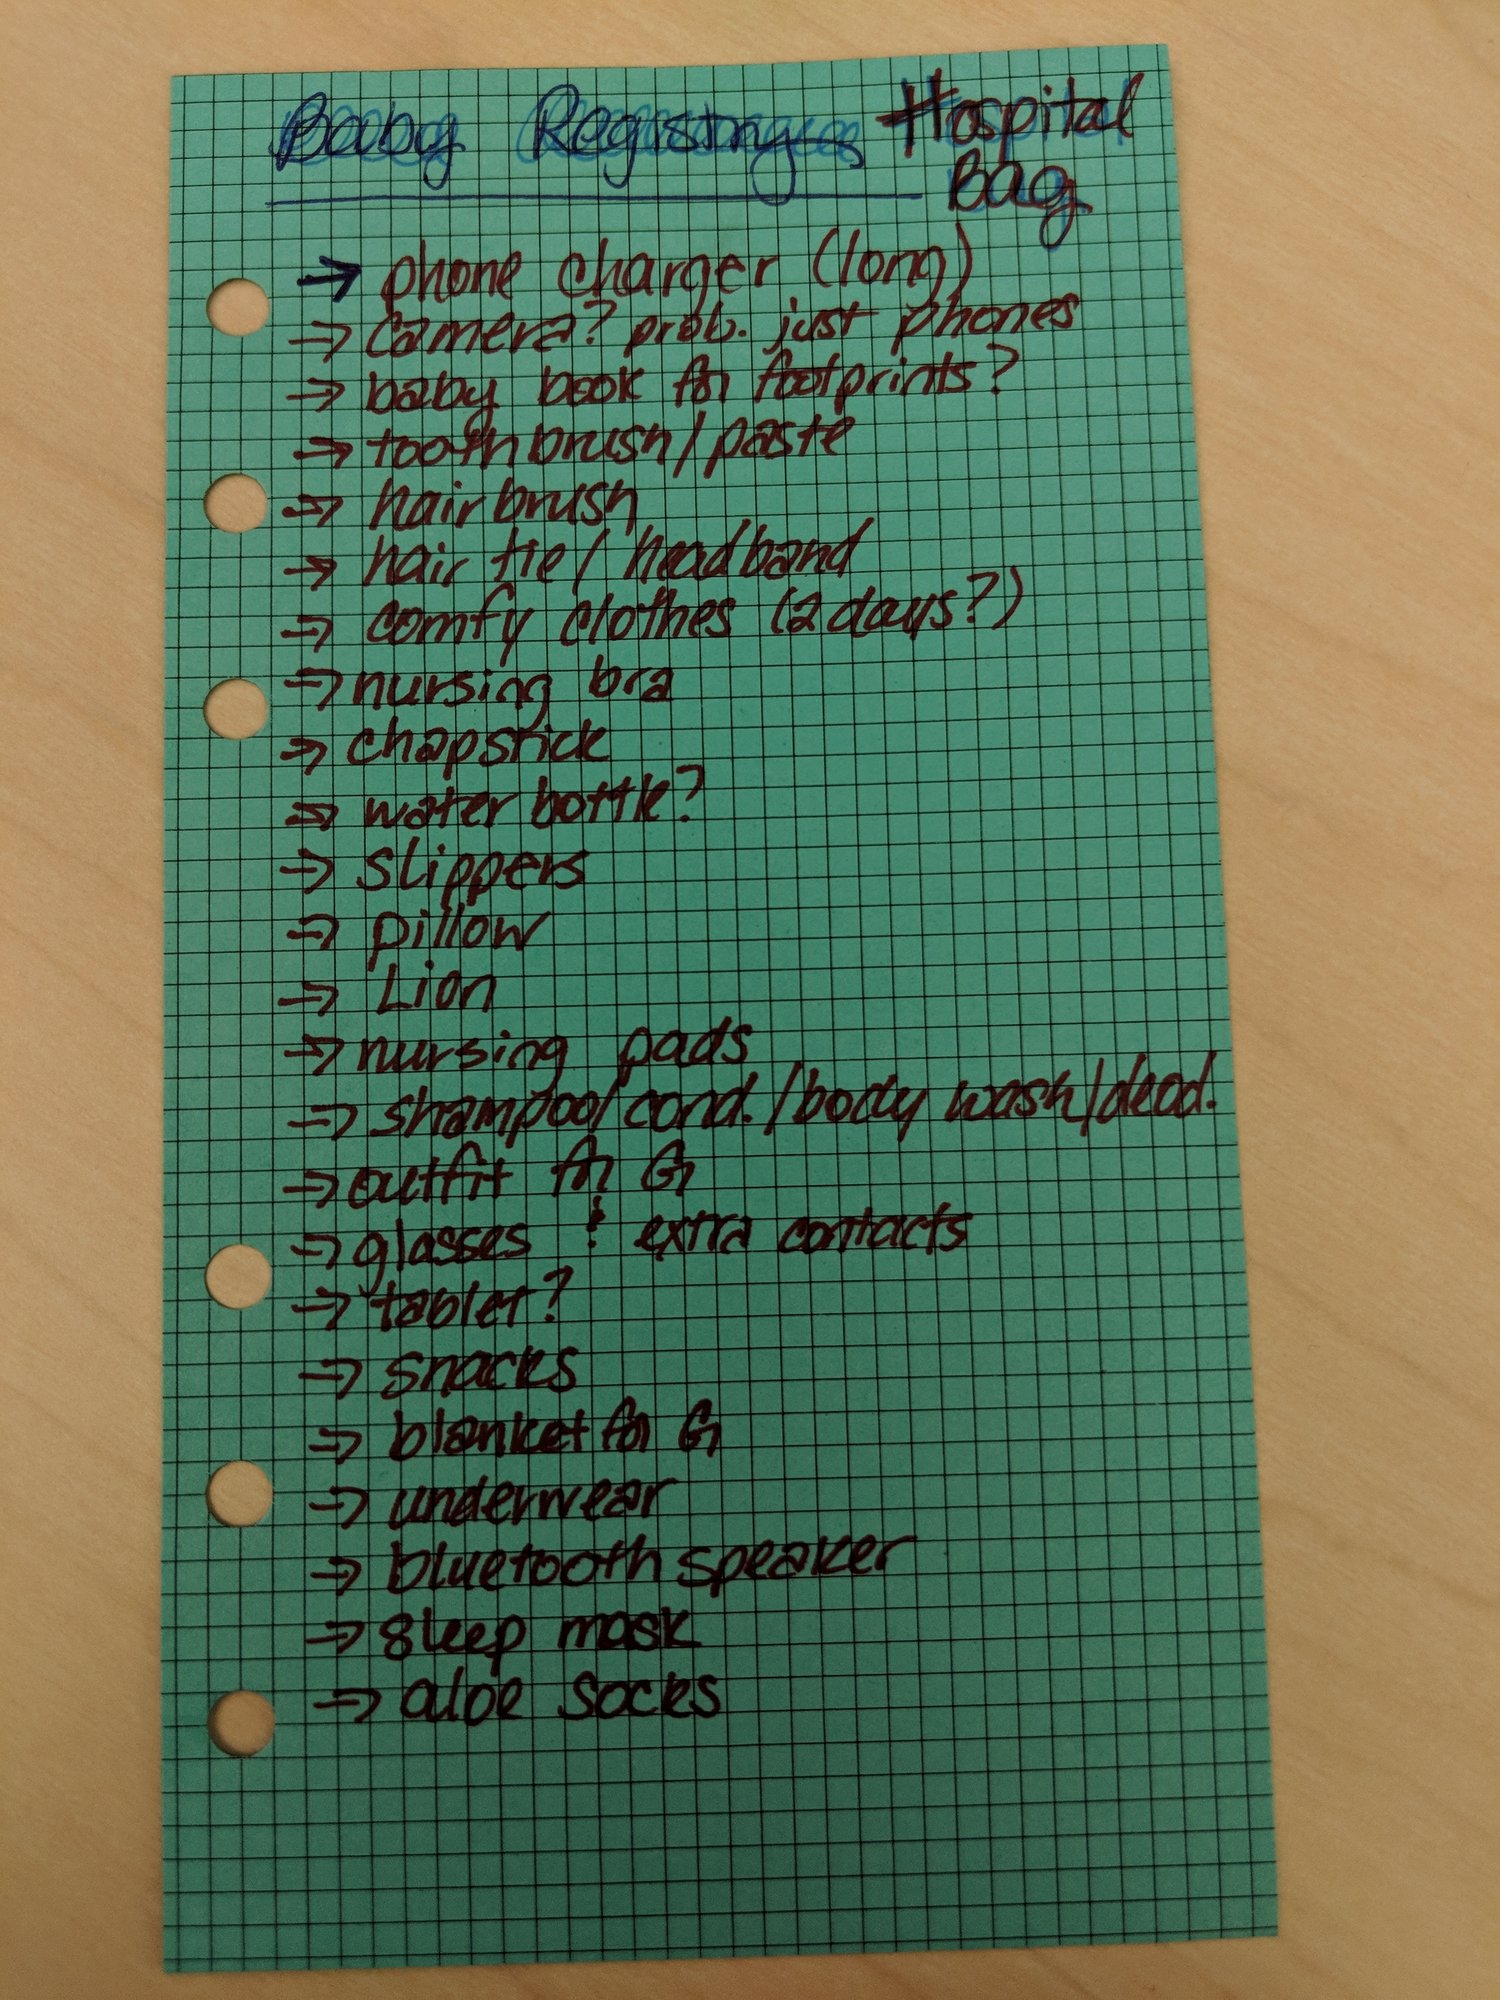 Baby Registry Hospital
Bag
→ phone charger (long)
→ camera? prob. just phones
→ baby book for footprints?
→ toothbrush/paste
→ hairbrush
→ hair tie/headband
→ comfy clothes (2 days?)
→ nursing bra
→ chapstick
→ water bottle?
→ slippers
→ pillow
→ Lion
→ nursing pads
→ shampoo/cond./body wash/deod.
→ outfit for G
→ glasses & extra contacts
→ tablet?
→ snacks
→ blanket for G
→ underwear
→ bluetooth speaker
→ sleep mask
→ aloe socks